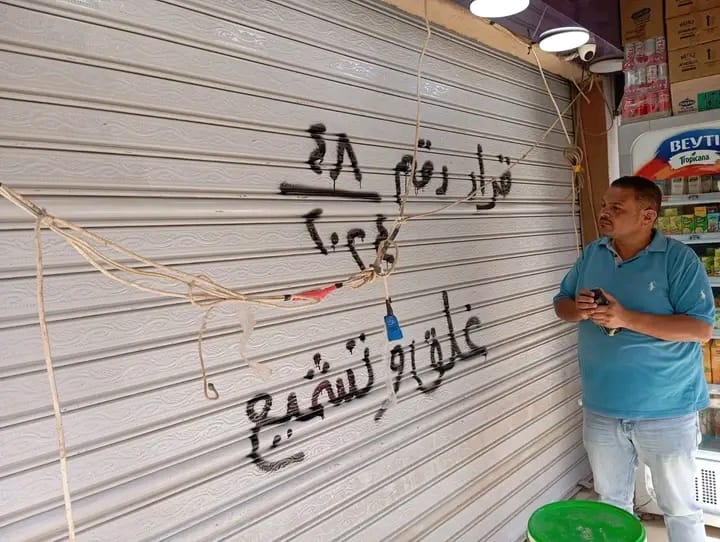 قرار رقم ٤٨
٢٠٢٤
غلق وتشميع
BEYTI
Tropicana